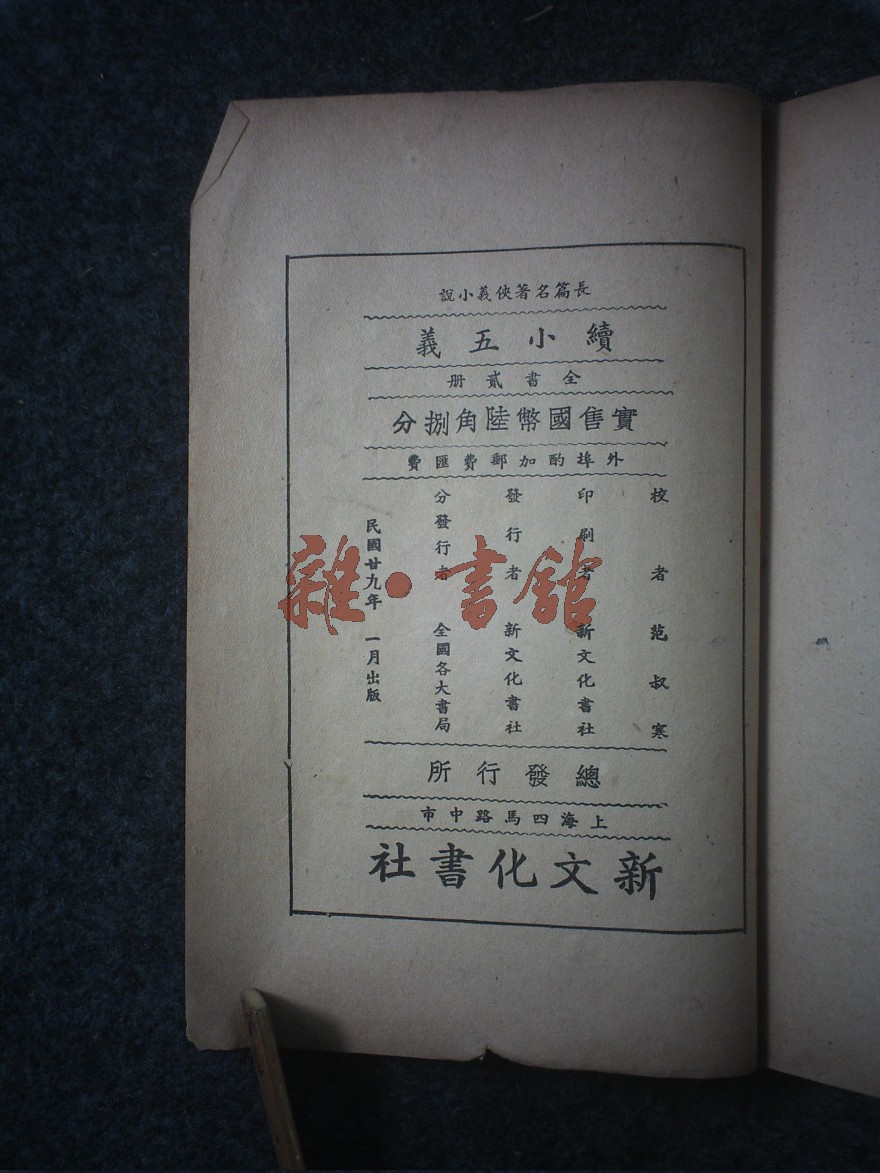 長篇名著俠義小說
續小五義
全書貳册
實售國幣陸角捌分
外埠酌加郵費匯費
校者范叔寒
印刷者新文化書社
發行者新文化書社
分發行者全國各大書局
民國廿九年一月出版
總發行所
上海四馬路中市
新文化書社
雜·書館